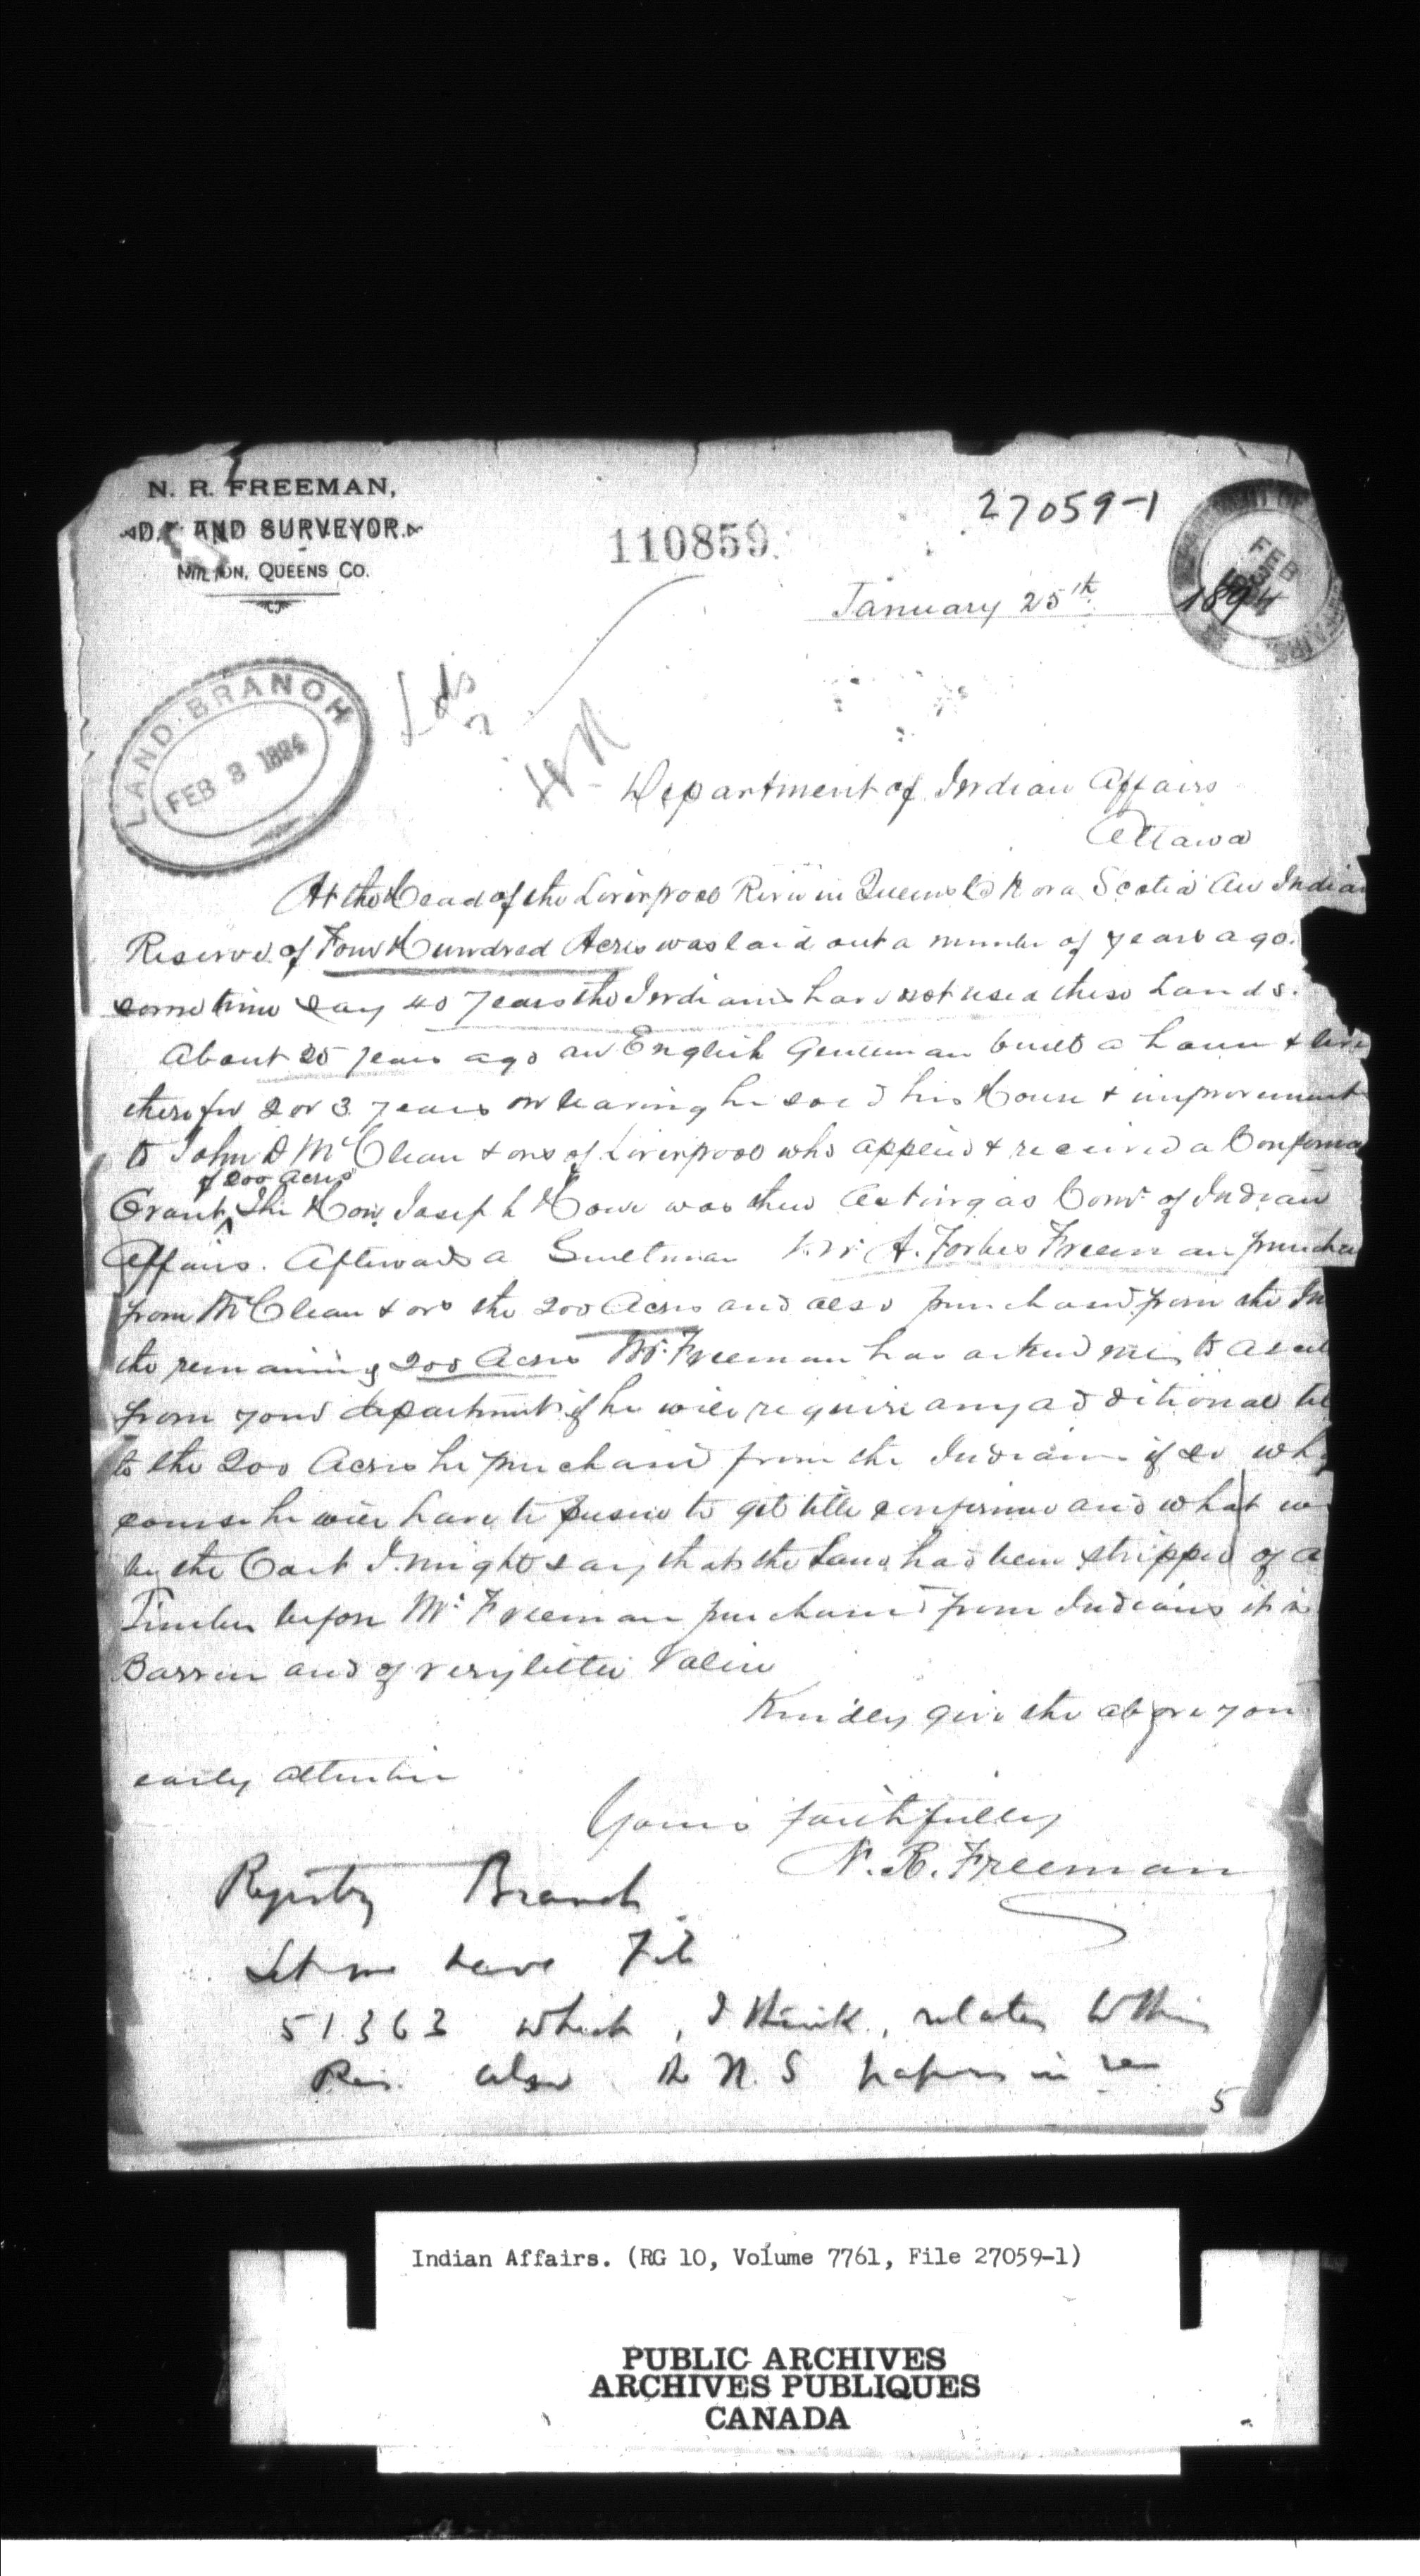 N. R. FREEMAN,
D. LAND SURVEYOR.
MILTON, QUEENS CO.
110859
27059-1
January 25th 1894
FEB 3
LAND BRANCH
FEB 3 1894
Lds
Department of Indian Affairs
Ottawa
At the Head of the Liverpool River in Queens Co Nova Scotia an Indian
Reserve of Four Hundred Acres was laid out a number of years ago.
some time say 40 years the Indians have not used these Lands.
About 25 years ago an English Gentleman built a house & live
there for 2 or 3 years on leaving he sold his House & improvement
to John D McClean & ons of Liverpool who applied & received a Confirma
of 200 Acres
Grant, The Hon Joseph Howe was then Acting as Comr of Indian
Affairs. Afterwards a Gentleman Mr A. Forbes Freeman purcha
from McClean & ons the 200 Acres and also purchased from the In
the remaining 200 Acres Mr Freeman has asked me to asert
from your department if he will require any additional tit
to the 200 Acres he purchased from the Indians if so wh
course he will have to pursue to get title confirmed and what w
be the Cost I might say that the Land had been stripped of a
Timber before Mr Freeman purchased from Indians it is
Barren and of very little Value
Kindly give the above your
early attention
Yours faithfully
N. R. Freeman
Registry Branch
Let me have File
51363 which, I think, relates to this
Res. also R N. S papers in re
5
Indian Affairs. (RG 10, Volume 7761, File 27059-1)
PUBLIC ARCHIVES
ARCHIVES PUBLIQUES
CANADA